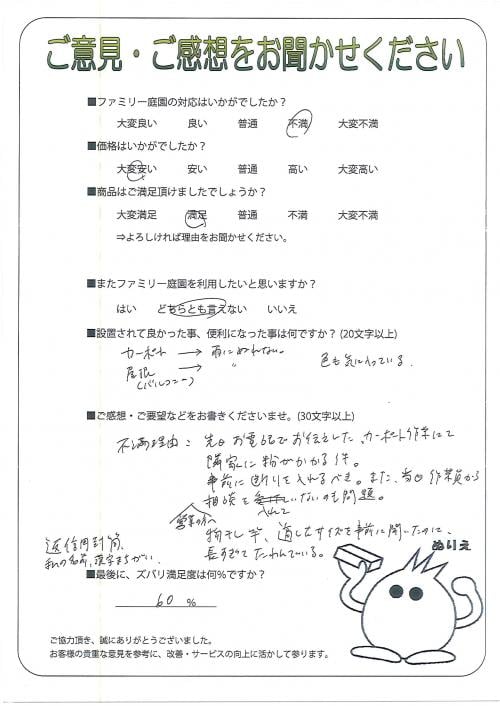 ご意見・ご感想をお聞かせください
■ファミリー庭園の対応はいかがでしたか？
大変良い 良い 普通 不満 大変不満
■価格はいかがでしたか？
大変安い 安い 普通 高い 大変高い
■商品はご満足頂けましたでしょうか？
大変満足 満足 普通 不満 大変不満
⇒よろしければ理由をお聞かせください。
■またファミリー庭園を利用したいと思いますか？
はい どちらとも言えない いいえ
■設置されて良かった事、便利になった事は何ですか？(20文字以上)
カーポート → 雨にぬれない。
屋根 → 〃 色も気に入っている。
(バルコニー)
■ご感想・ご要望などをお書きくださいませ。(30文字以上)
不満理由： 先日お電話でお伝えした、カーポート作業にて
隣家に粉がかかる件。
事前に断りを入れるべき。また、当日作業員から
相談を入れていないのも問題。
営業の方へ
物干し竿、適したサイズを事前に聞いたのに、
長すぎてたわんでいる。
返信用封筒
私の名前、漢字まちがい。
ぬりえ
■最後に、ズバリ満足度は何％ですか？
60 %
ご協力頂き、誠にありがとうございました。
お客様の貴重な意見を参考に、改善・サービスの向上に活かして参ります。